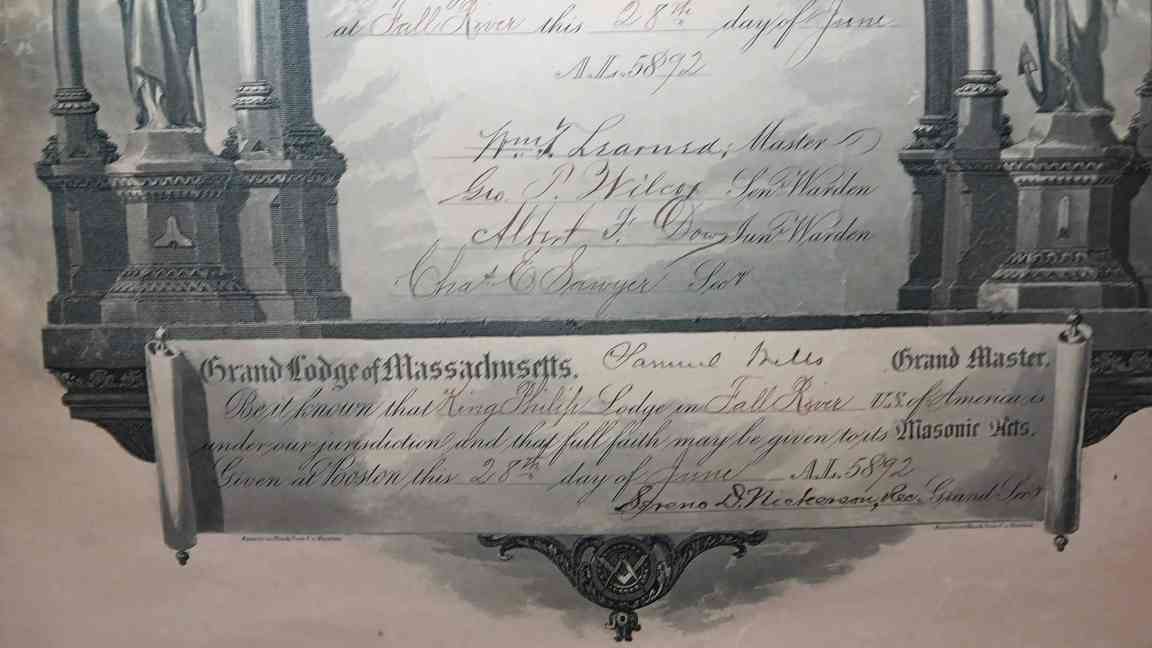 at Fall River this 28th day of June
A.L. 5892
Wm. T. Learned, Master
Geo. P. Wilcox Senr Warden
Albert F. Dow Junr Warden
Chas E Sawyer Secr
Grand Lodge of Massachusetts. Samuel Wells Grand Master.
Be it known that King Philip Lodge in Fall River U.S. of America is
under our jurisdiction and that full faith may be given to its Masonic Acts.
Given at Boston this 28th day of June A.L. 5892
Sereno D. Nickerson, Rec. Grand Secr